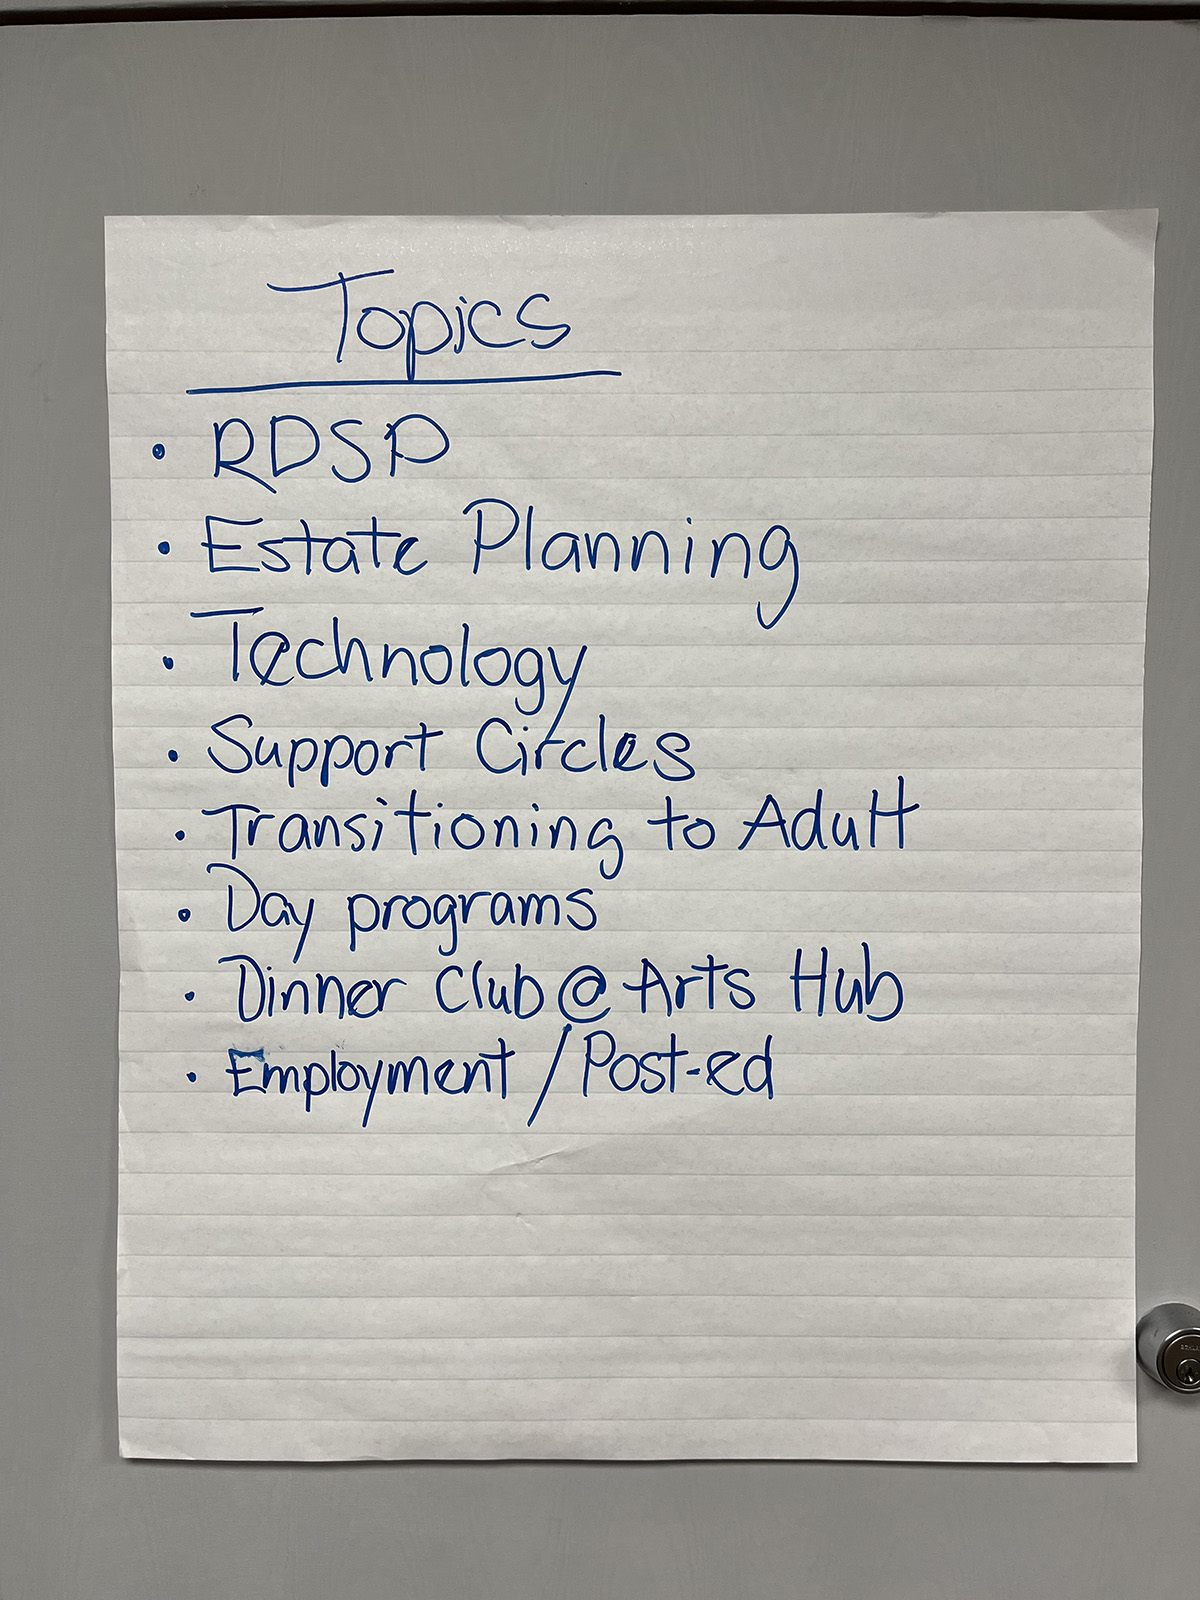 Topics
• RDSP
• Estate Planning
• Technology
• Support Circles
• Transitioning to Adult
• Day programs
• Dinner Club @ Arts Hub
• Employment / Post-ed